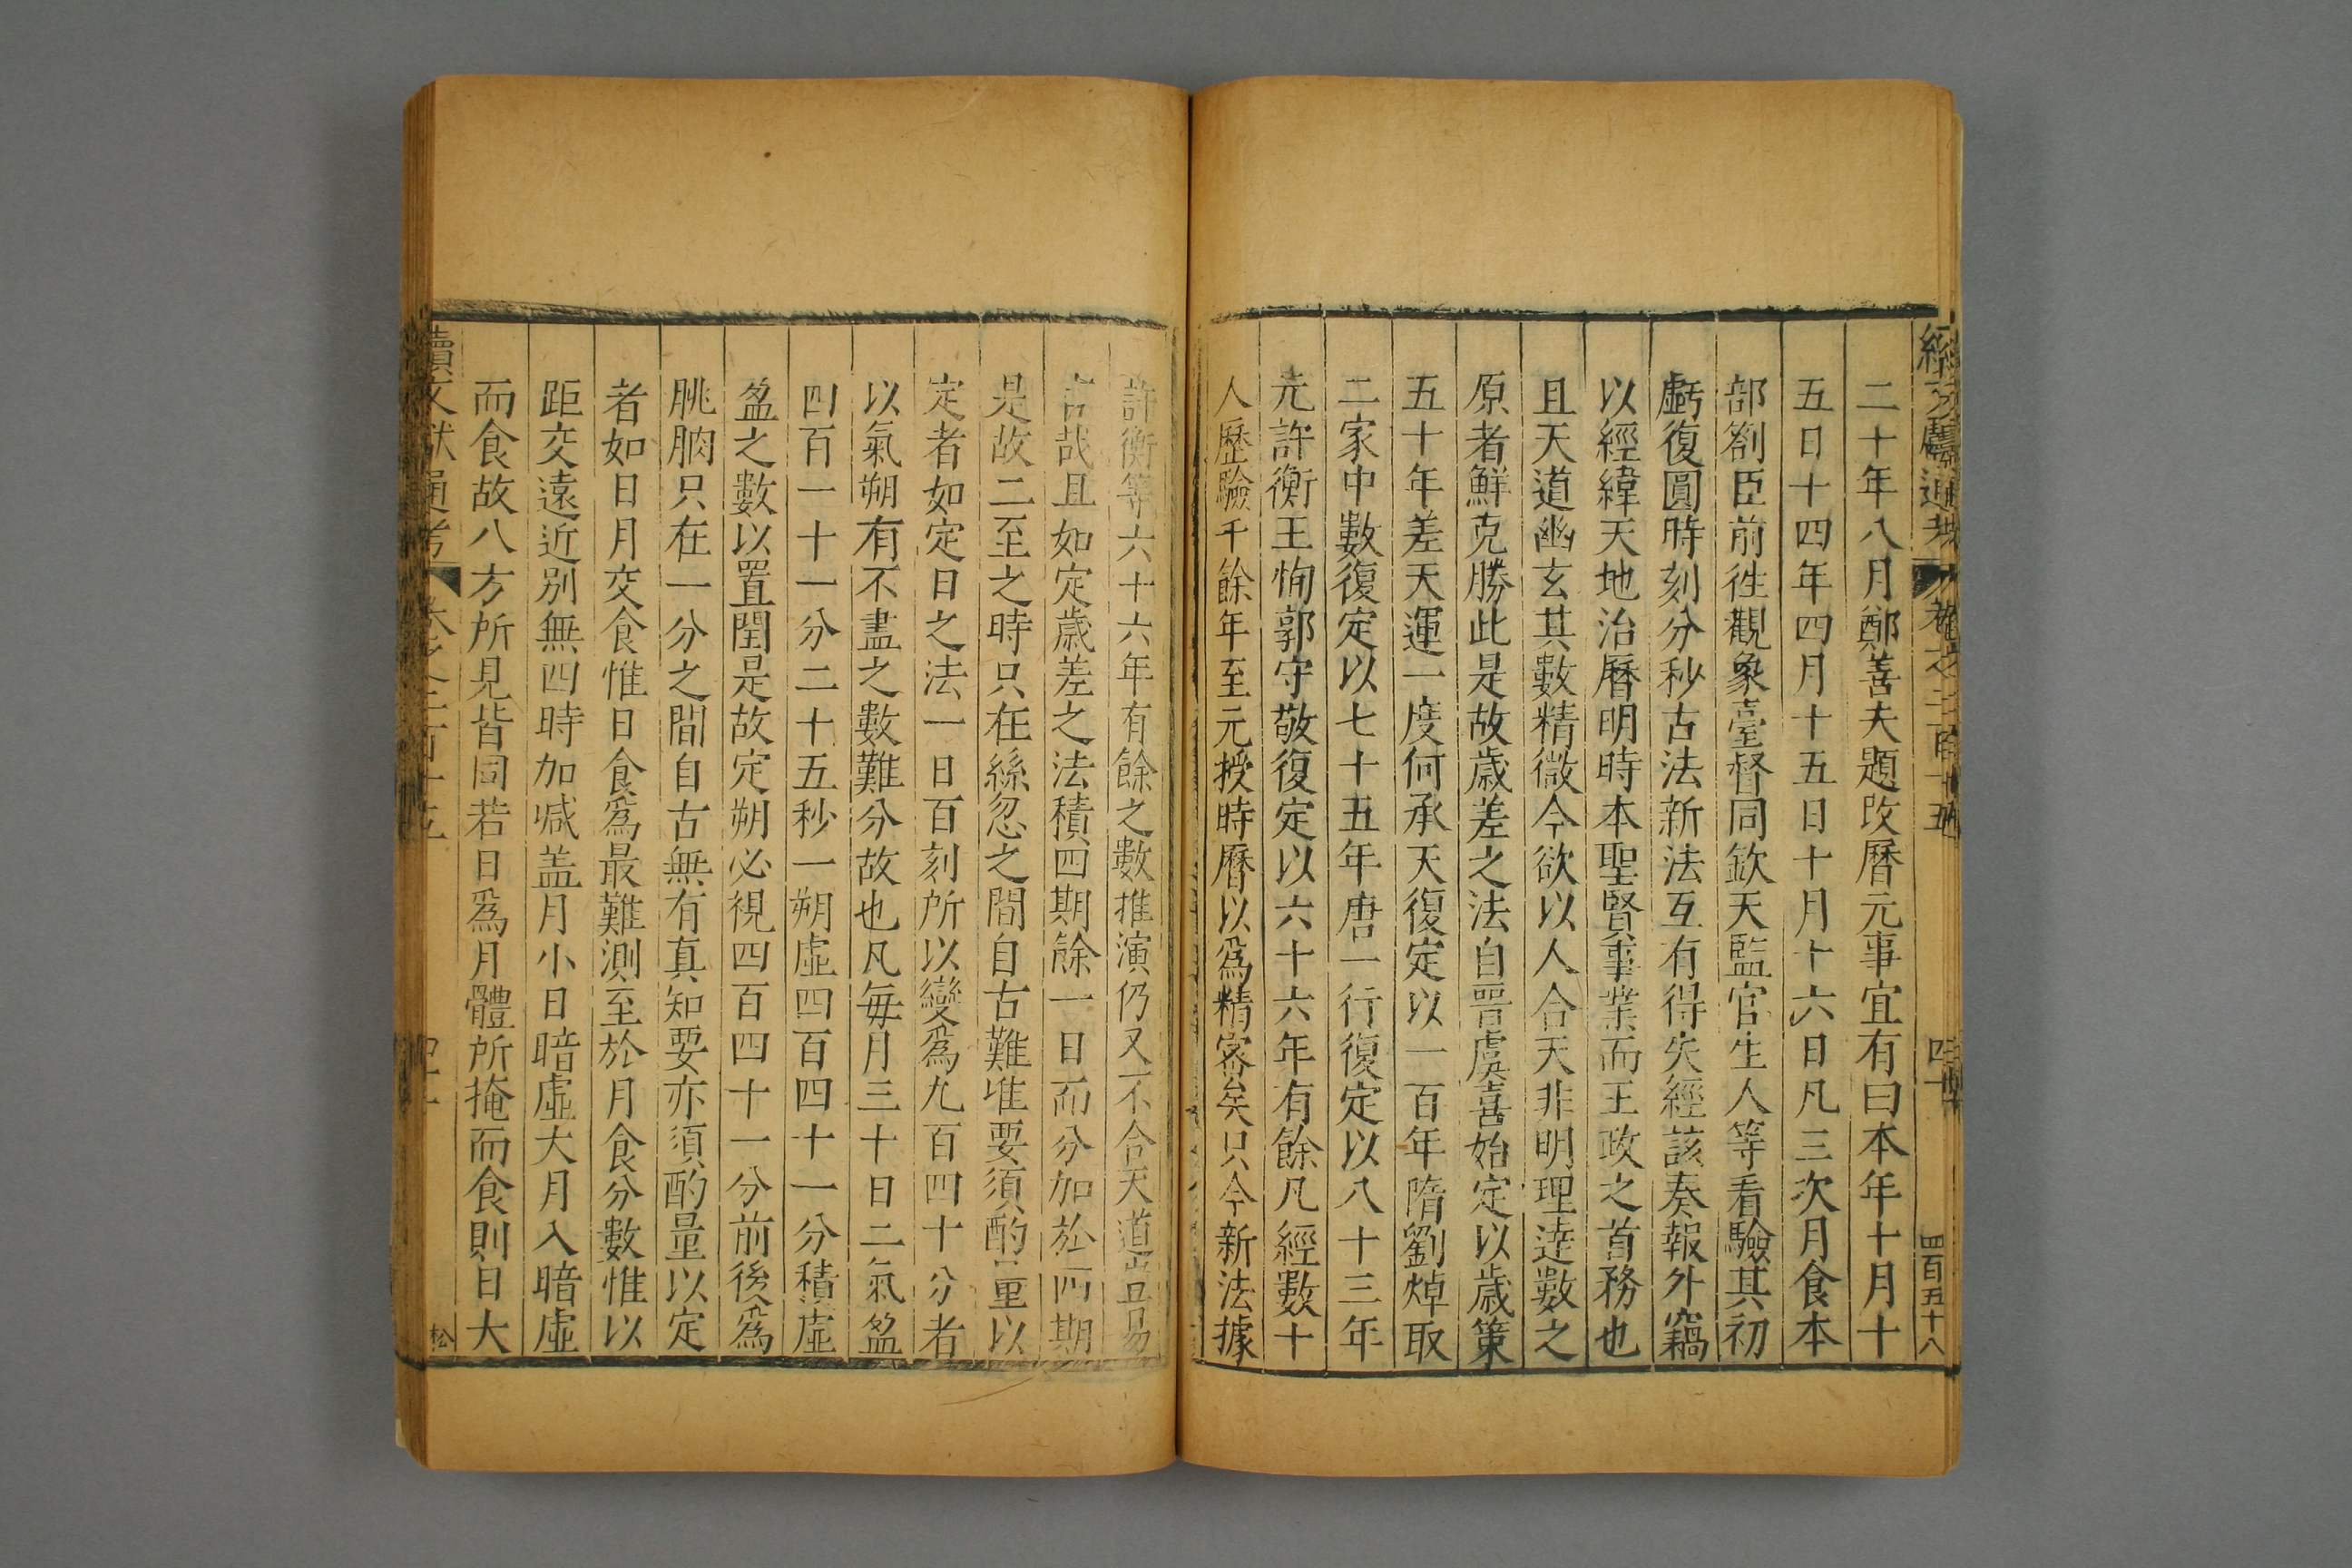 續文獻通考 卷之二百十五 四十 四百五十八
二十年八月鄭善夫題改曆元事宜有曰本年十月十
五日十四年四月十五日十月十六日凡三次月食本
部劄臣前徃觀象臺督同欽天監官生人等看驗其初
虧復圓時刻分秒古法新法互有得失經該奏報外竊
以經緯天地治曆明時本聖賢事業而王政之首務也
且天道幽玄其數精微今欲以人合天非明理逹數之
原者鮮克勝此是故歲差之法自晉虞喜始定以歲策
五十年差天運一度何承天復定以一百年隋劉焯取
二家中數復定以七十五年唐一行復定以八十三年
元許衡王恂郭守敬復定以六十六年有餘凡經數十
人歷驗千餘年至元授時曆以爲精宻矣只今新法據
許衡等六十六年有餘之數推演仍又不合天道豈易
言哉且如定歲差之法積四期餘一日而分加於四期
是故二至之時只在絲忽之間自古難准要須酌量以
定者如定日之法一日百刻所以變爲九百四十分者
以氣朔有不盡之數難分故也凡每月三十日二氣盈
四百一十一分二十五秒一朔虛四百四十一分積虛
盈之數以置閏是故定朔必視四百四十一分前後爲
朓朒只在一分之間自古無有真知要亦須酌量以定
者如日月交食惟日食爲最難測至於月食分數惟以
距交遠近別無四時加减盖月小日暗虛大月入暗虛
而食故八方所見皆同若日爲月體所掩而食則日大
續文獻通考 卷之二百十五 四十 松